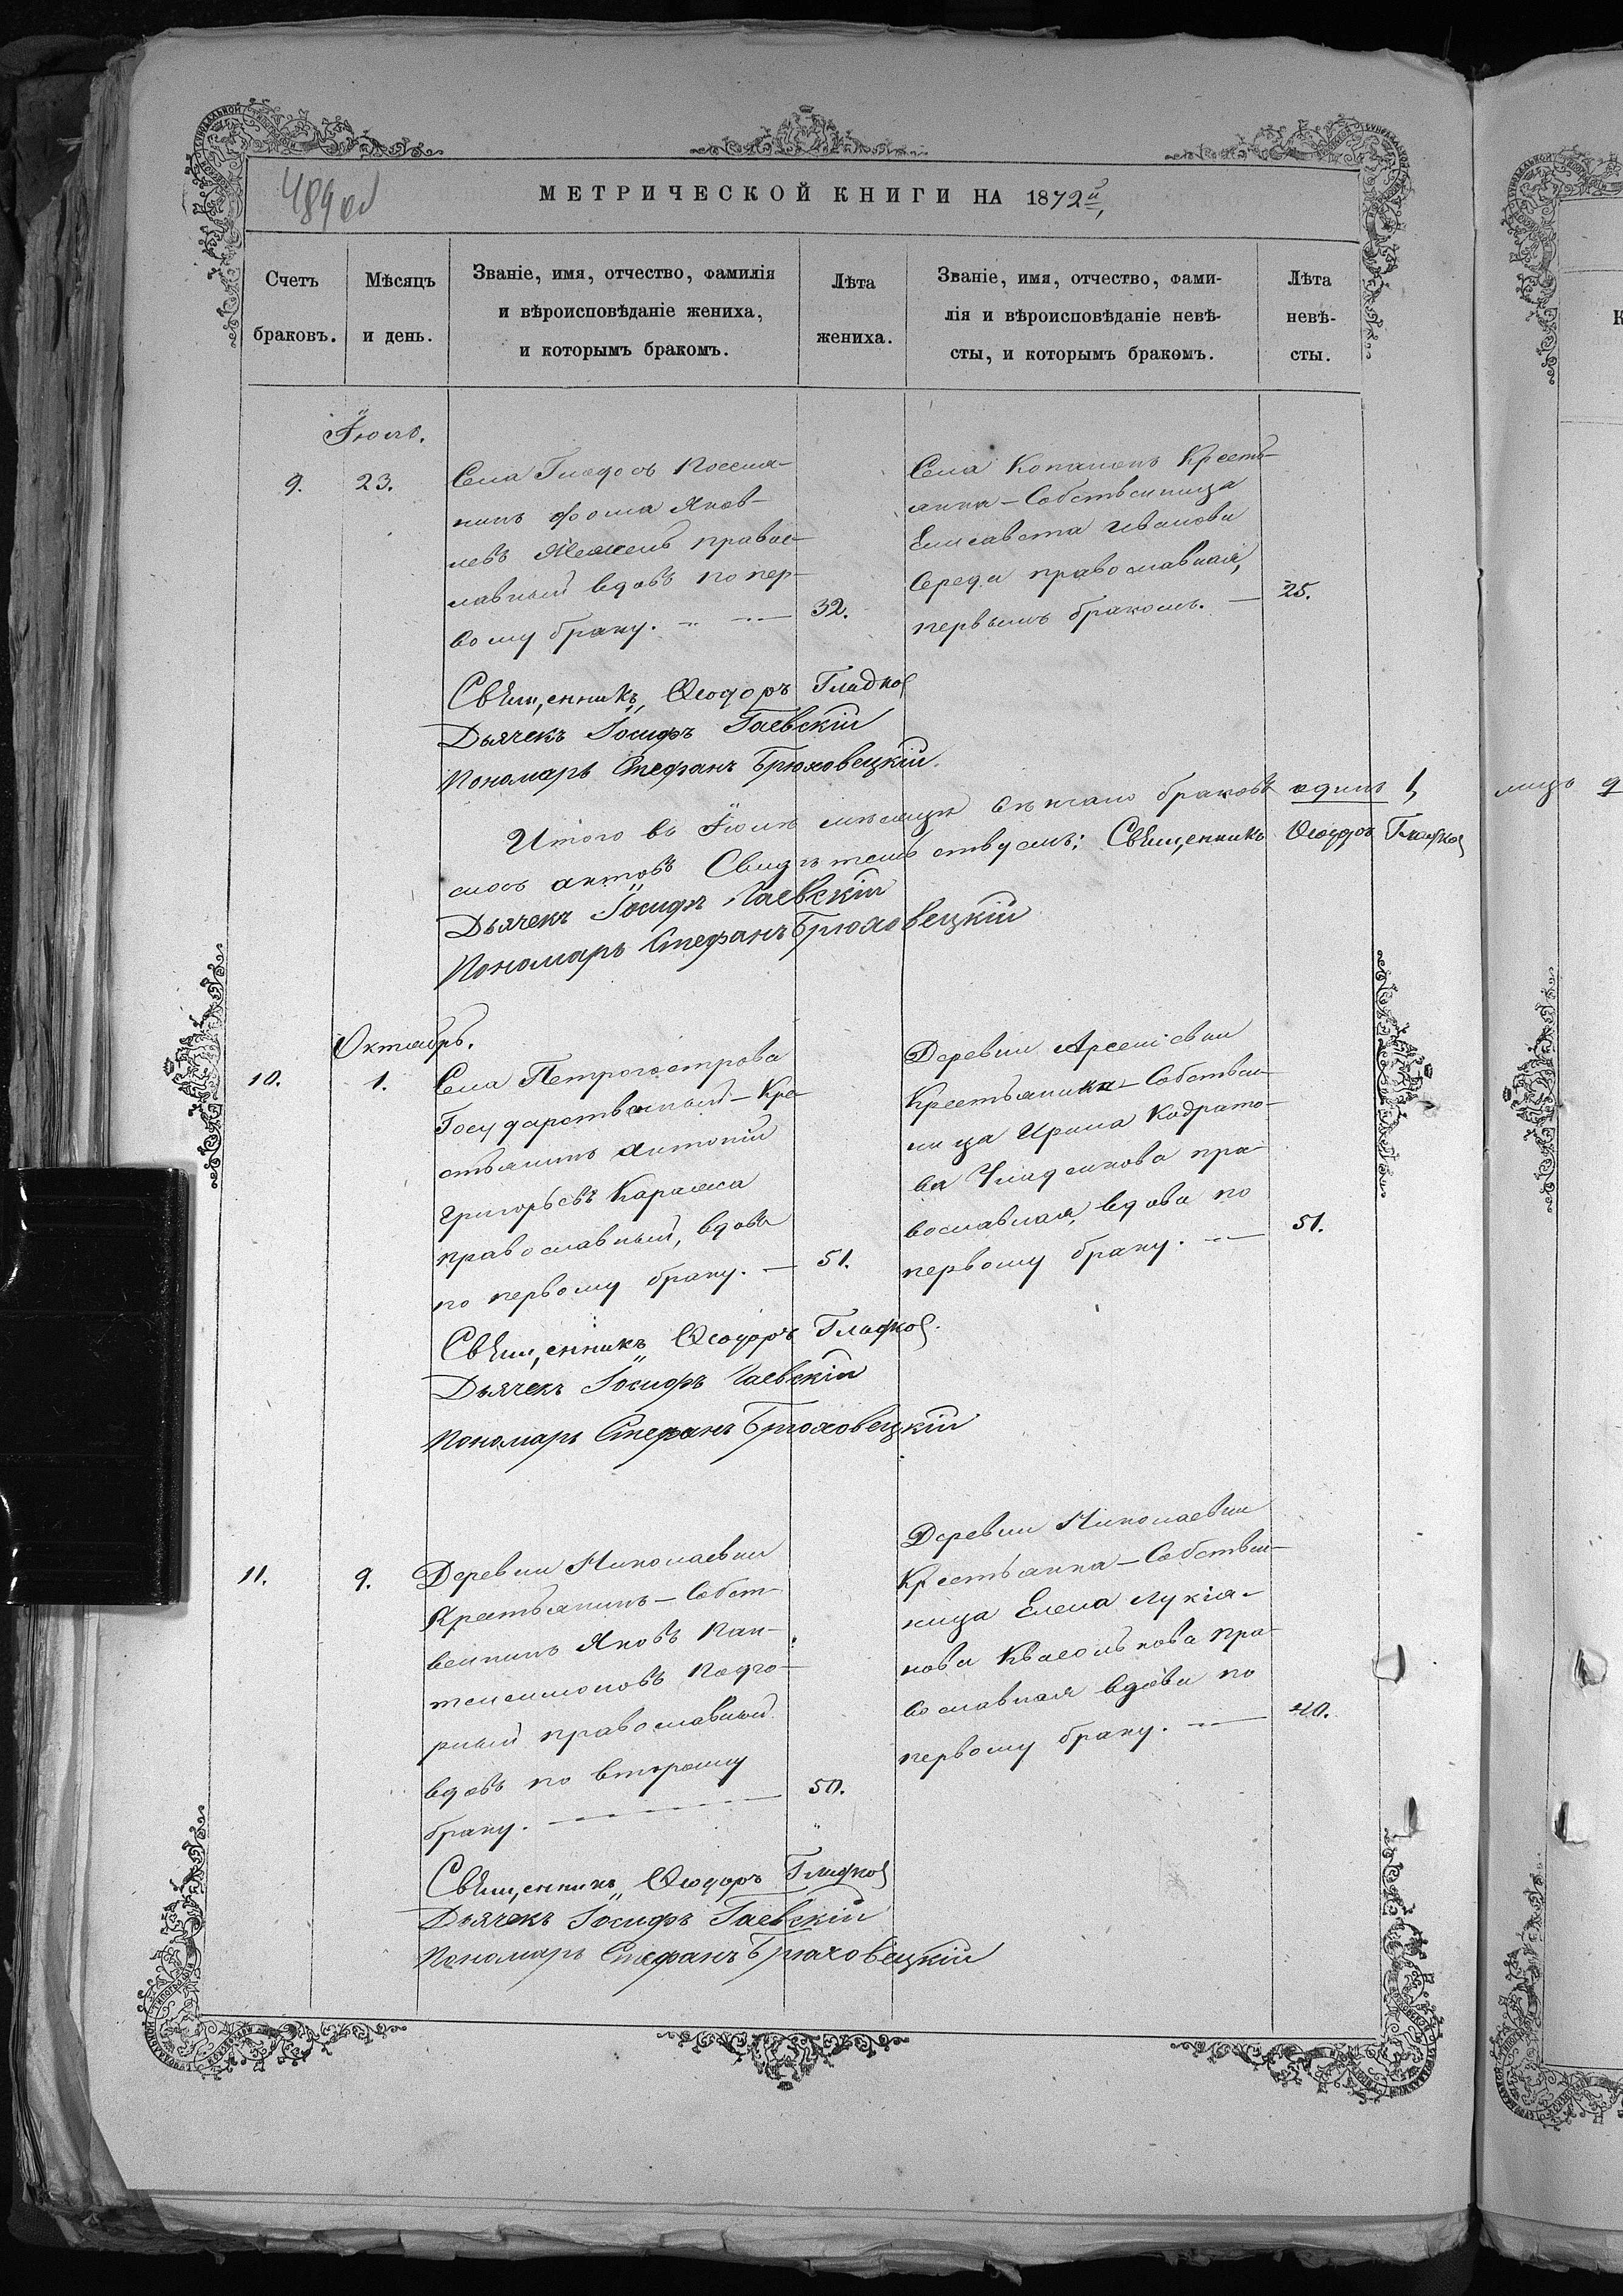 489 об
МЕТРИЧЕСКОЙ КНИГИ НА 1872й,
Счетъ браковъ.
Мѣсяцъ и день.
Званіе, имя, отчество, фамилія
и вѣроисповѣданіе жениха,
и которымъ бракомъ.
Лѣта жениха.
Званіе, имя, отчество, фами-
лія и вѣроисповѣданіе невѣ-
сты, и которымъ бракомъ.
Лѣта
невѣ-
сты.
Іюль.
9. 23.
Села Глодосъ Поселя-
нинъ Фома Яков-
левъ правос-
лавный вдовъ по пер-
вому браку. 32.
Села Копанокъ Кресть-
янка-Собственница
Елисавета Иванова
Середа православная,
первымъ бракомъ. 25.
Священникъ Ѳеодоръ Гладков
Дьячекъ Іосифъ Гаевскій
Пономарь Стефанъ Брюховецкій.
Итого въ Іюлѣ мѣсяцѣ браковъ одинъ 1,
актовъ Свидѣтельствуемъ: Священникъ Ѳеодоръ Гладков
Дьячекъ Іосифъ Гаевскій
Пономарь Стефанъ Брюховецкій
Октябрь.
10. 1.
Села Петроострова
Государственный-Кре-
стьянинъ Антоній
Григорьевъ
православный, вдовъ
по первому браку. 51.
Деревни Арсеніевки
Крестьянка-Собствен-
ница Ирина Кодрато-
ва пра-
вославная, вдова по
первому браку. 51.
Священникъ Ѳеодоръ Гладков.
Дьячекъ Іосифъ Гаевскій
Пономарь Стефанъ Брюховецкій
11. 9.
Деревни Николаевки
Крестьянинъ-Собст-
венникъ Яковъ Пан-
телеимоновъ Подго-
рный православный
вдовъ по второму
браку. 50.
Деревни Николаевки
Крестьянка-Собствен-
ница Елена Лукія-
нова пра-
вославная вдова по
первому браку. 40.
Священникъ Ѳеодоръ Гладков
Дьячекъ Іосифъ Гаевскій
Пономарь Стефанъ Брюховецкій